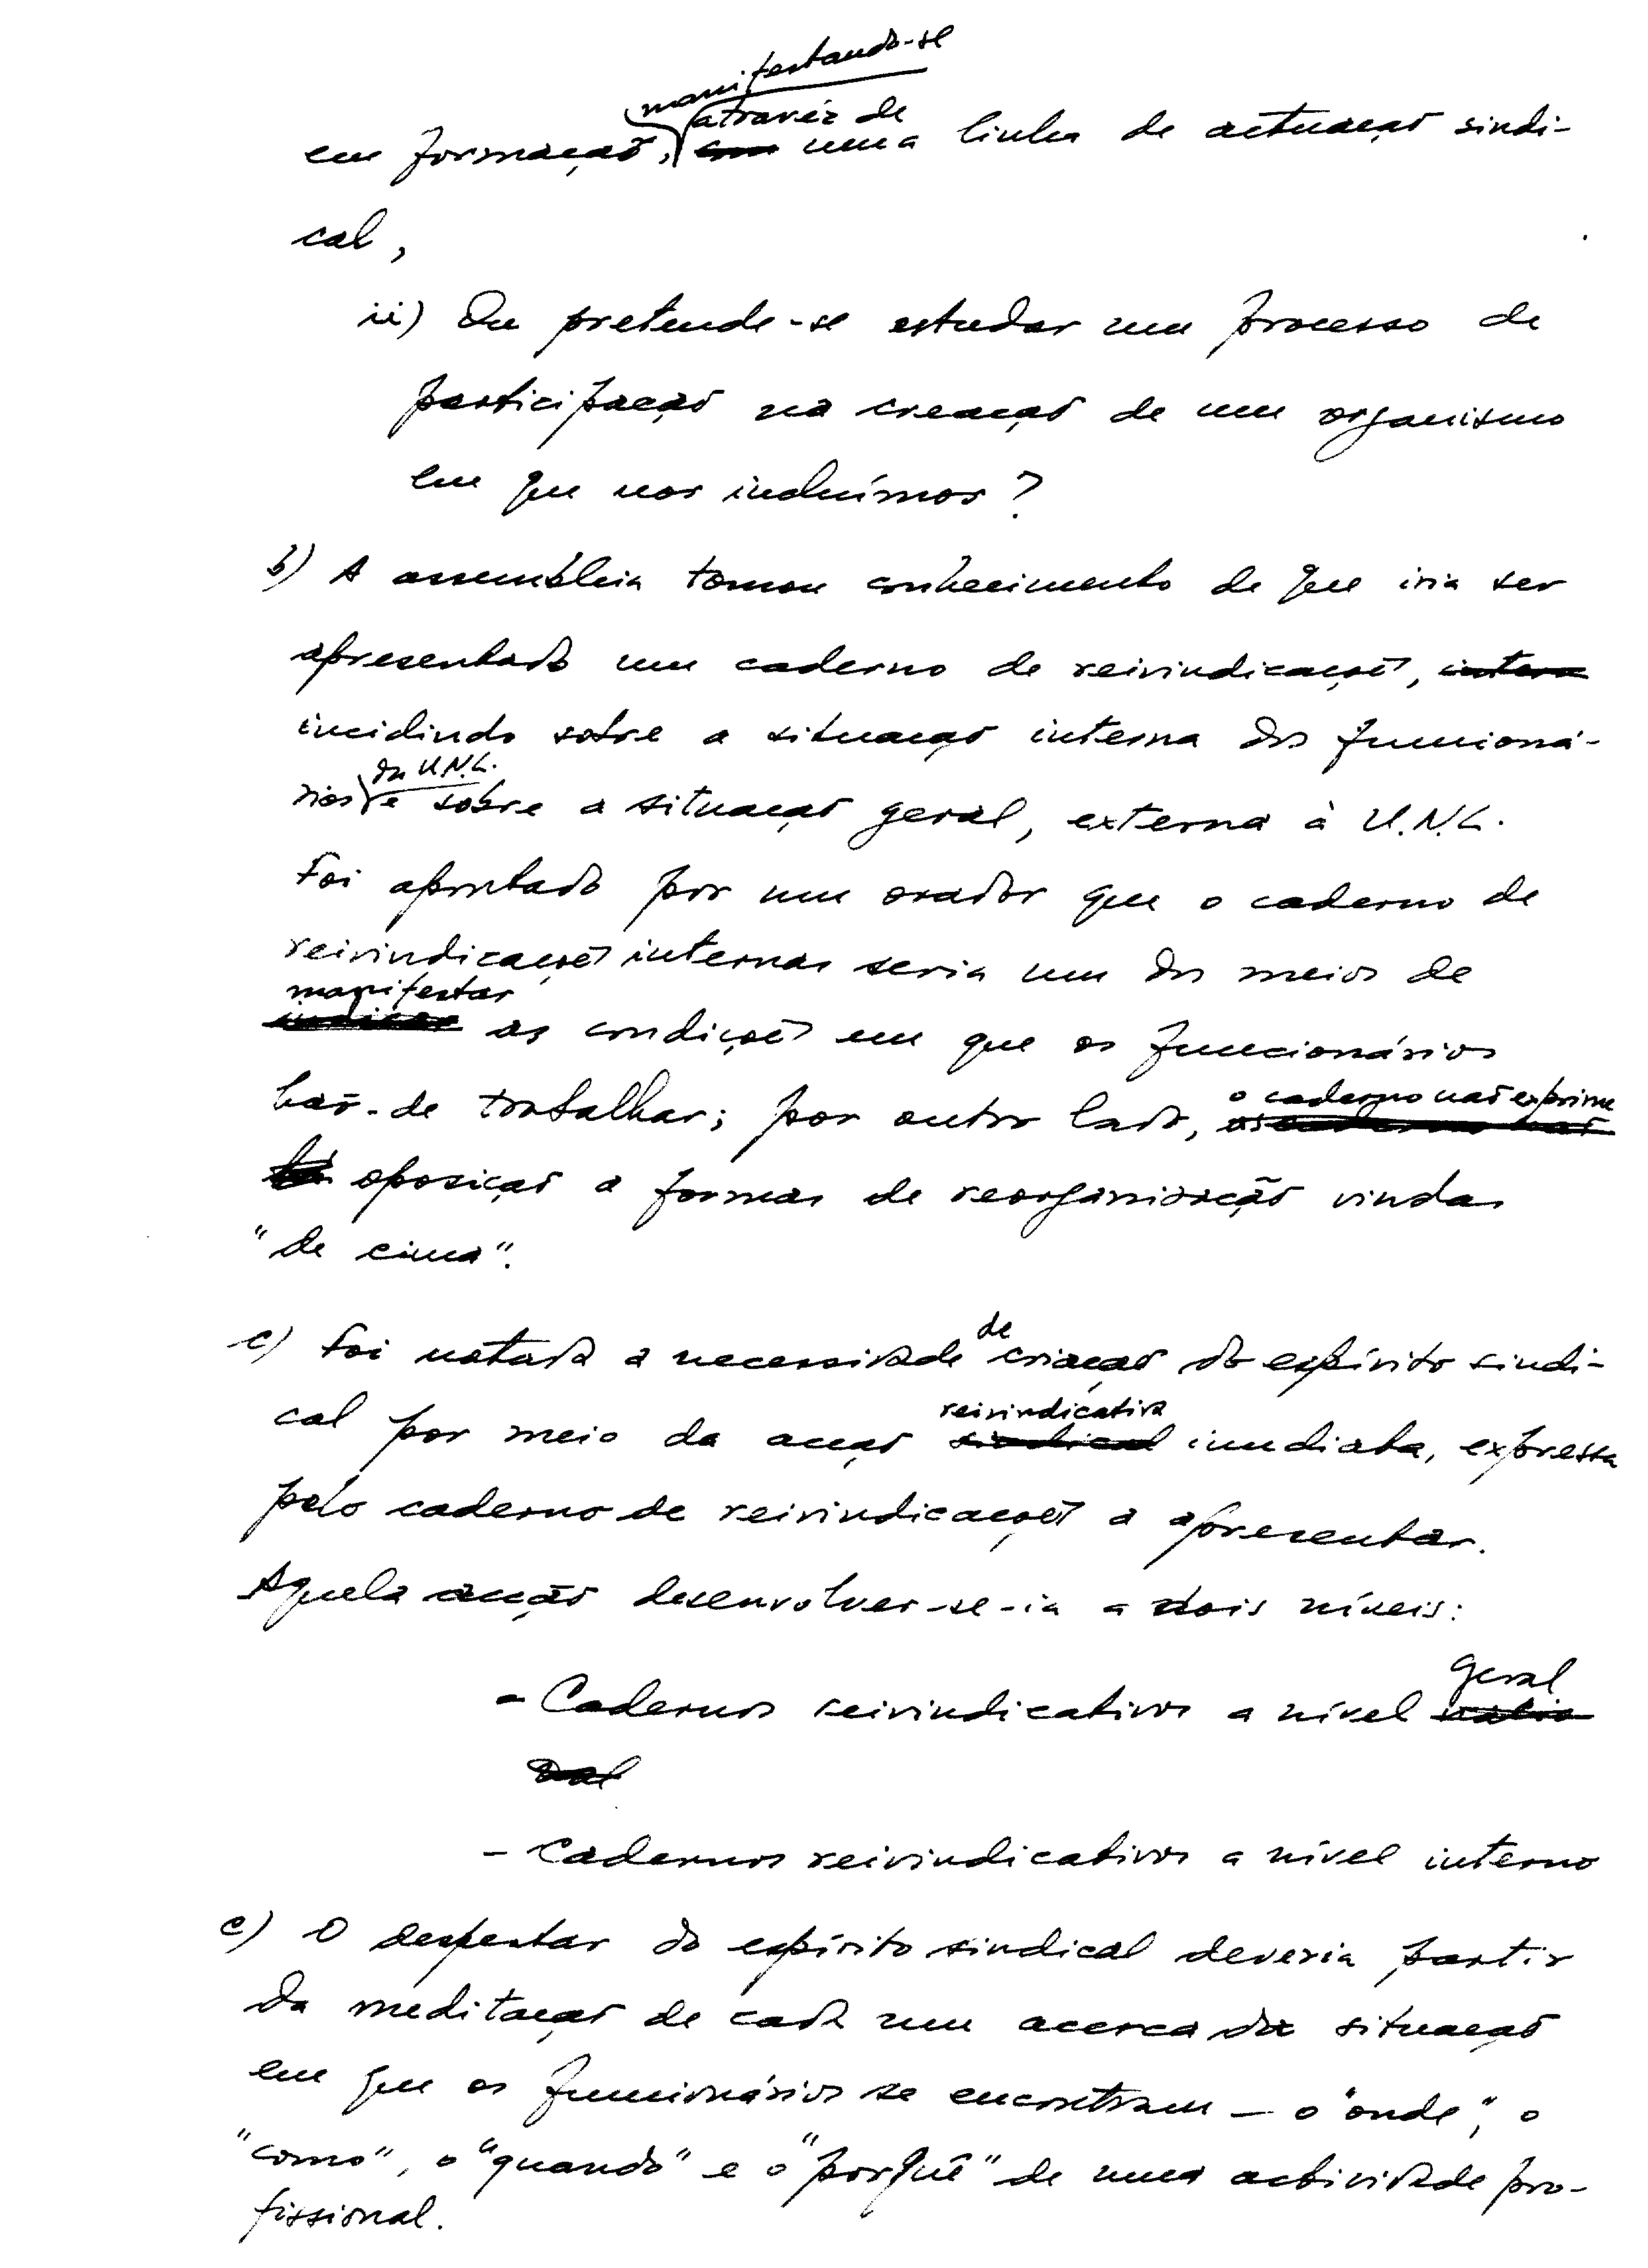 manifestando-se
através de
em formação, com uma linha de actuação sindi-
cal,
ii) Ou pretende-se estudar um processo de
participação na creação de um organismo
em que nos incluímos?
b) A assembleia tomou conhecimento de que iria ser
apresentado um caderno de reivindicações, intern
incidindo sobre a situação interna dos funcioná-
da U.N.L.
rios e sobre a situação geral, externa à U.N.L.
Foi apontado por um orador que o caderno de
reivindicações internas seria um dos meios de
manifestar
indicar as condições em que os funcionários
o caderno não exprime
hão-de trabalhar; por outro lado, os cadernos não
há oposição a formas de reorganização vindas
"de cima".
de
c) Foi notada a necessidade criação do espírito sindi-
reivindicativa
cal por meio da acção sindical imediata, expressa
pelo caderno de reivindicações a apresentar.
Aquela acção desenvolver-se-ia a dois níveis:
geral
- Cadernos reivindicativos a nível nacio
nal
- Cadernos reivindicativos a nível interno
c) O despertar do espírito sindical deveria partir
da meditação de cada um acerca da situação
em que os funcionários se encontram — o "onde", o
"como", o "quando" e o "porquê" de uma actividade pro-
fissional.